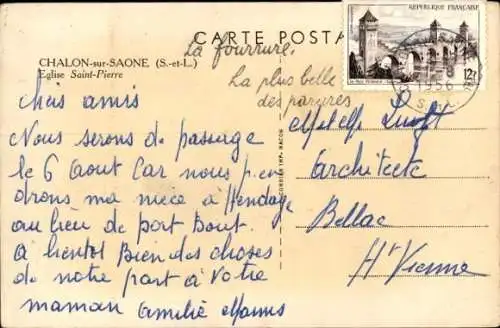 CARTE POSTA
REPUBLIQUE FRANÇAISE
12F
1956
CHALON-sur-SAONE (S.-et-L.)
Eglise Saint-Pierre
La fourrure,
La plus belle
des parures
Chers amis
Nous serons de passage
le 6 Aout Car nous pren
drons ma niece à Hendaye
au lieu de port Bout.
A bientot Bien des choses
de notre part à Votre
maman amitié
IMP. MACON
Architecte
Bellac
Hte Vienne